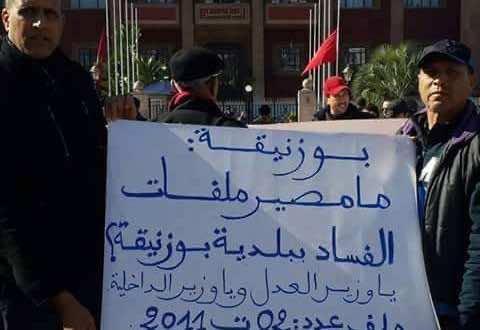 بوزنيقة:
ما مصير ملفات
الفساد ببلدية بوزنيقة؟
يا وزير العدل ويا وزير الداخلية
ملف عدد: 02 ت 2011